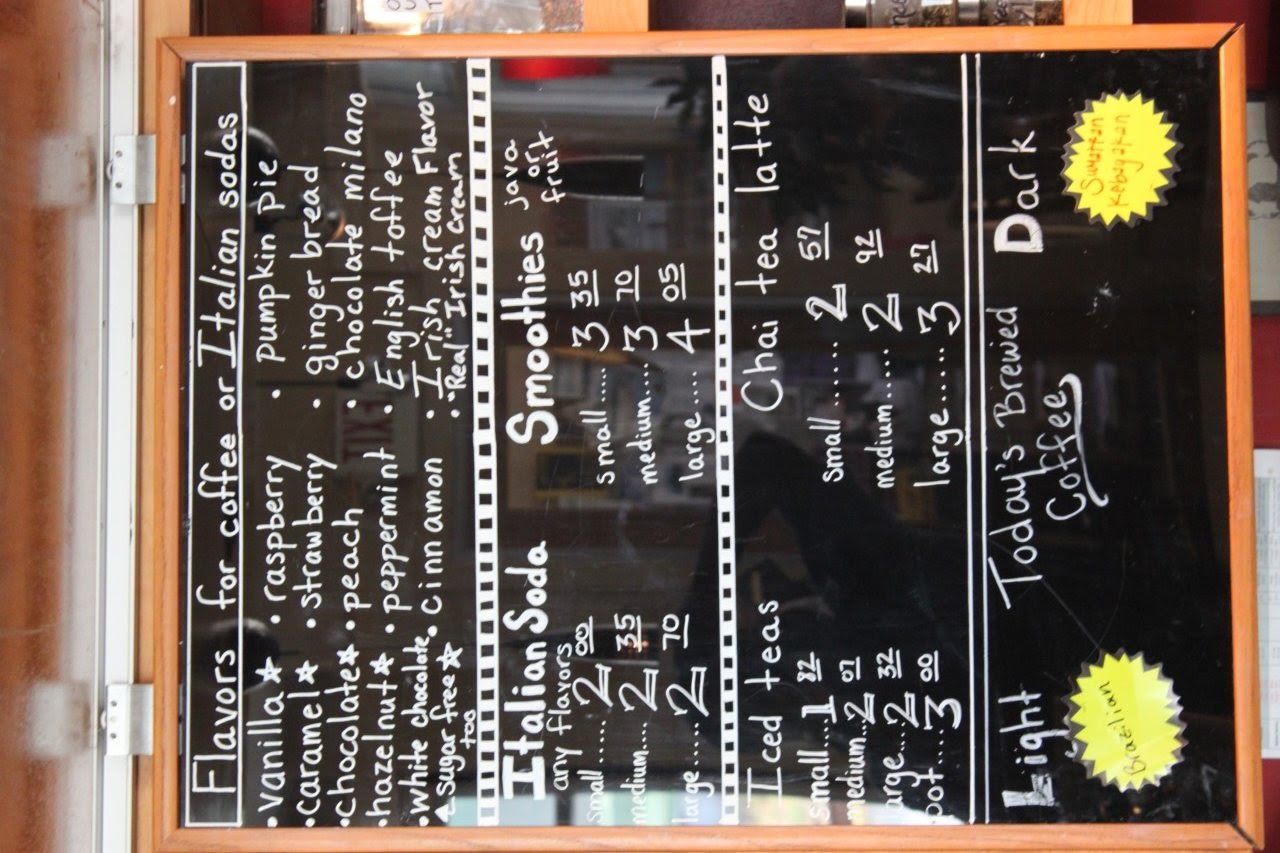 Flavors for coffee or Italian sodas
• vanilla ☆
• caramel ☆
• chocolate ☆
• hazelnut ☆
• white chocolate
☆ sugar free ☆
too
• raspberry
• strawberry
• peach
• peppermint
• cinnamon
• pumpkin pie
• ginger bread
• chocolate milano
• English toffee
• Irish cream Flavor
• "Real" Irish cream
Italian Soda
any flavors
small...... 2 00
medium.... 2 35
large...... 2 70
Smoothies java or fruit
small...... 3 35
medium..... 3 70
large.... 4 05
Iced teas
small.... 1 82
medium... 2 07
large... 2 32
pot.... 3 00
Chai tea latte
small...... 2 57
medium..... 2 92
large..... 3 27
Light
Brazilian
Today's Brewed
Coffee
Dark
Sumatran
Kebayakan